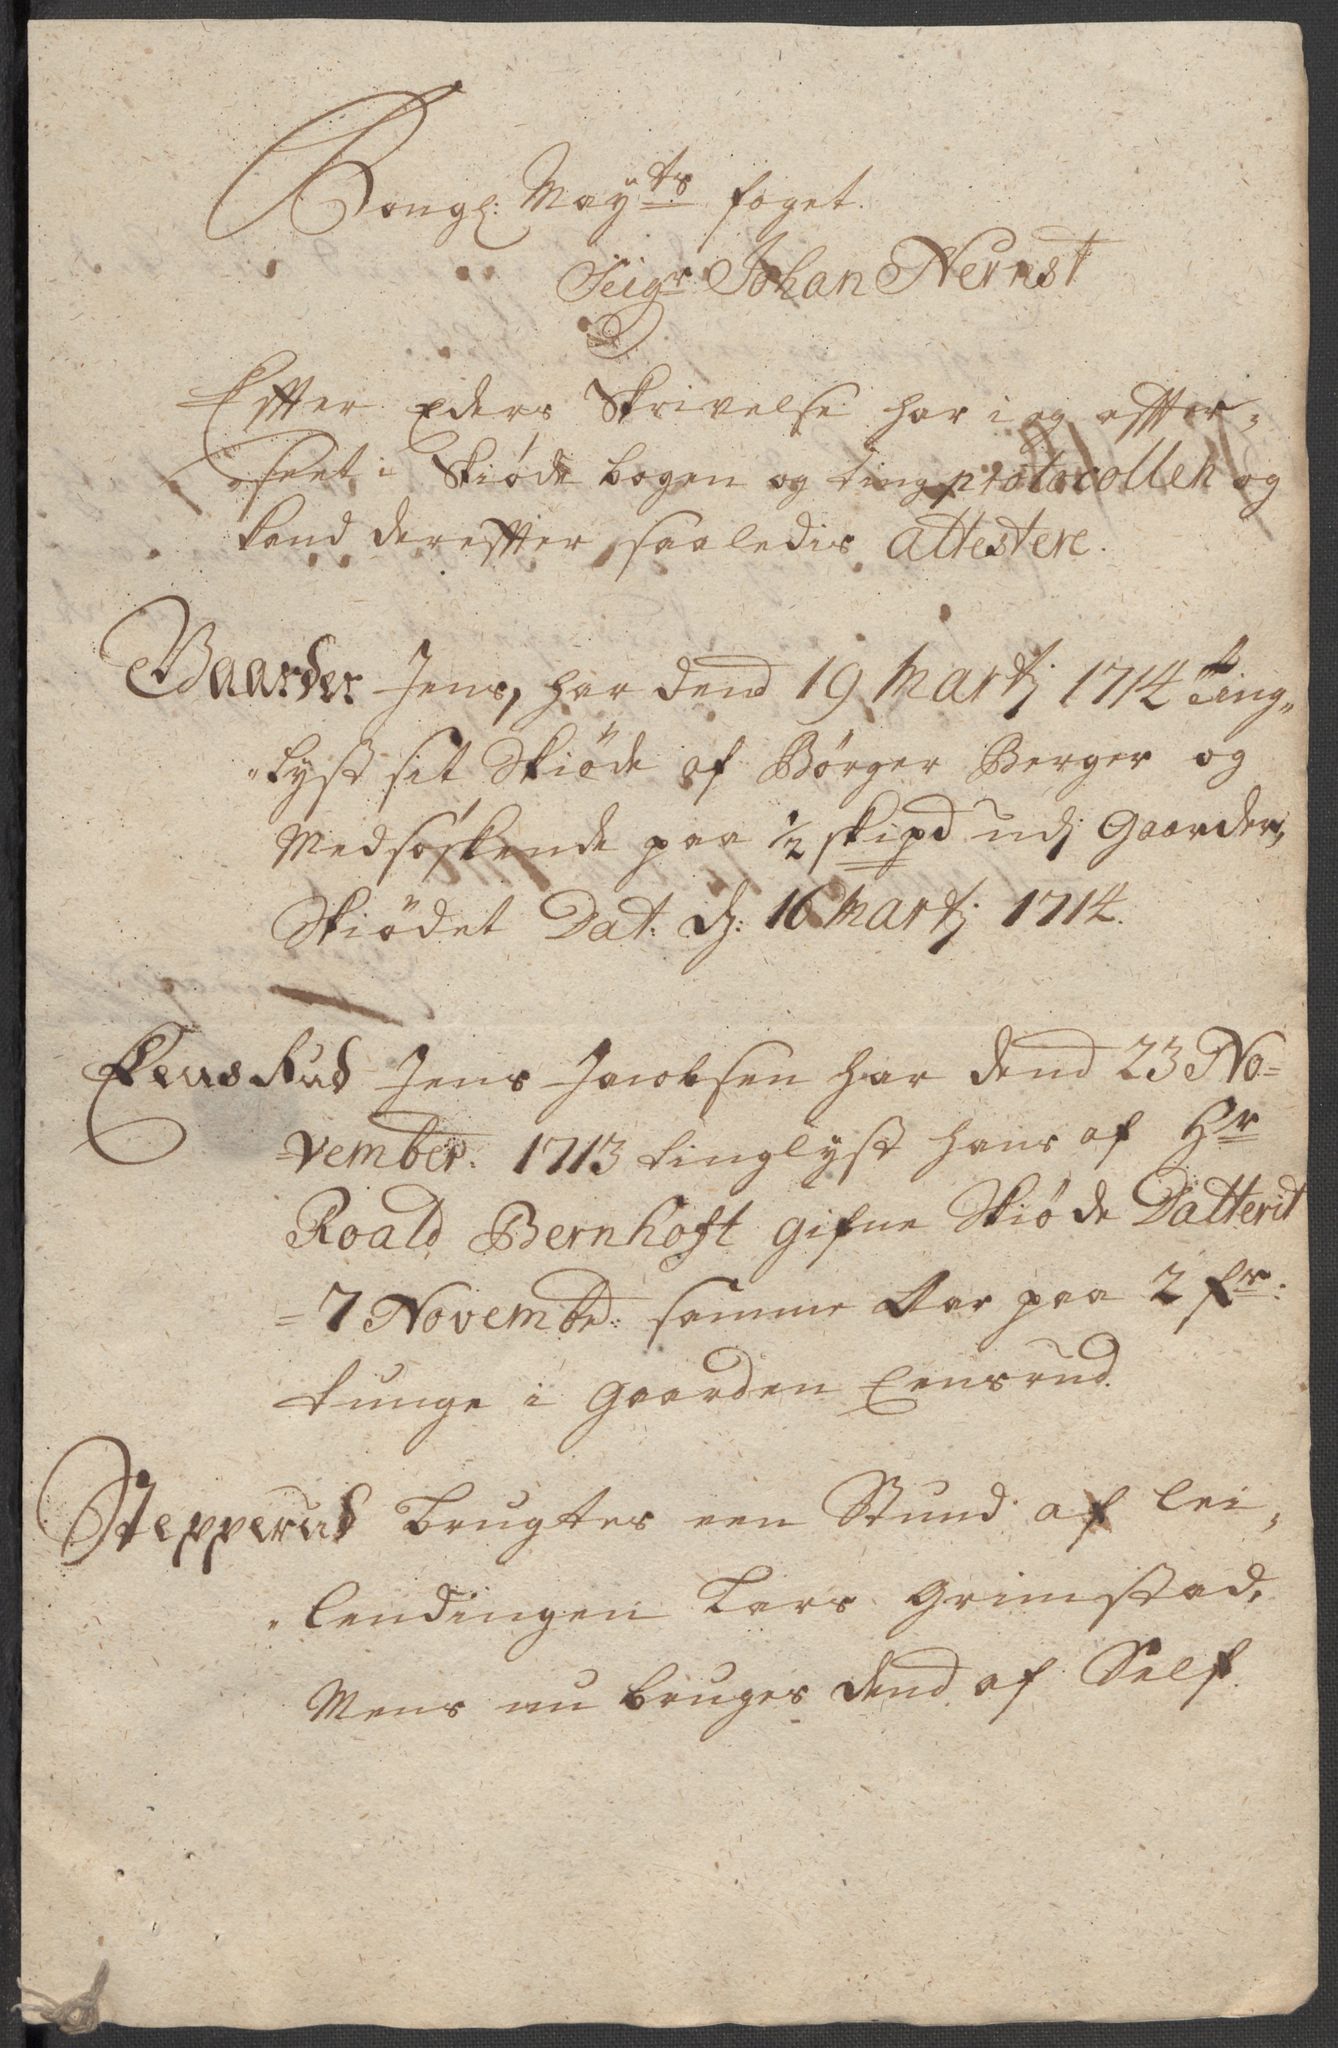 Kongl: Mayts foget.
Seigr Johan Nernst
Effter Eders Skrivelse har ieg effter-
seet i Skiøde bogen og ting protocollen og
kand dereffter saaledis attestere.
Gaarder Jens, har dend 19 Martj 1714 ting-
lyst sit Skiøde af Børger Berger og
Medsøskende paa 1/2 skipd udj Gaarder,
Skiödet Dat: dj: 16 Martj 1714.
Eensrud Jens Jacobsen har dend 23 No-
vember. 1713 tinglyst hans af Hr
Roald Bernhoft gifne Skiøde Datterit
7 Novembr: samme Aar paa 2 fr:
tunge i Gaarden Eensrud.
Stepperud brugtes een Stund af lei-
lendingen Lars Grimstad,
Mens nu bruges dend af Self.